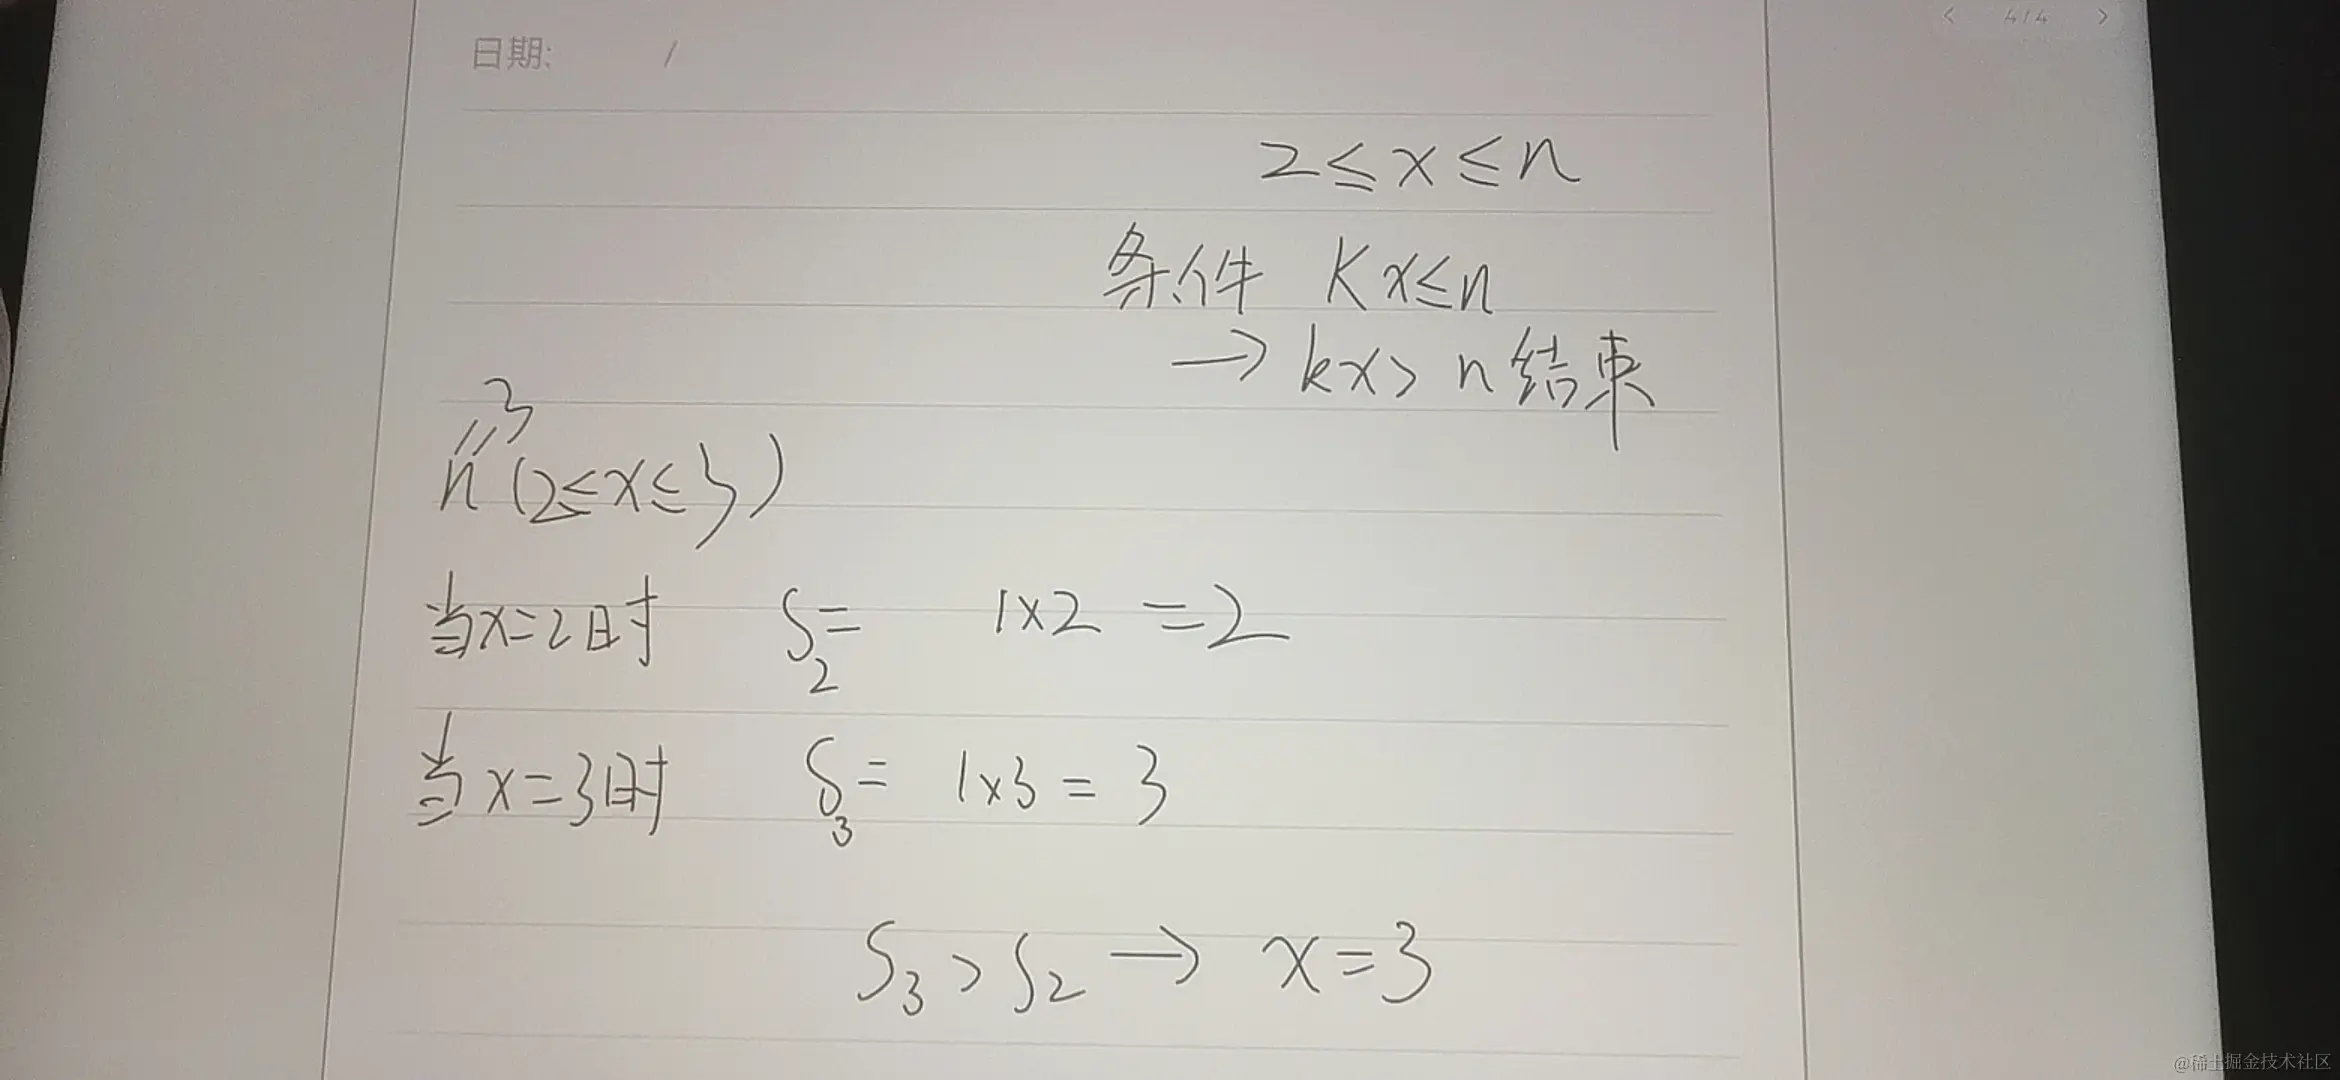 日期: /
< 4/4 >
2≤x≤n
条件 Kx≤n
→ kx> n 结束
3
//
n (2≤x≤3)
当x=2时 S₂= 1×2 =2
当x=3时 S₃= 1×3 = 3
S₃>S₂ → x=3
@稀土掘金技术社区